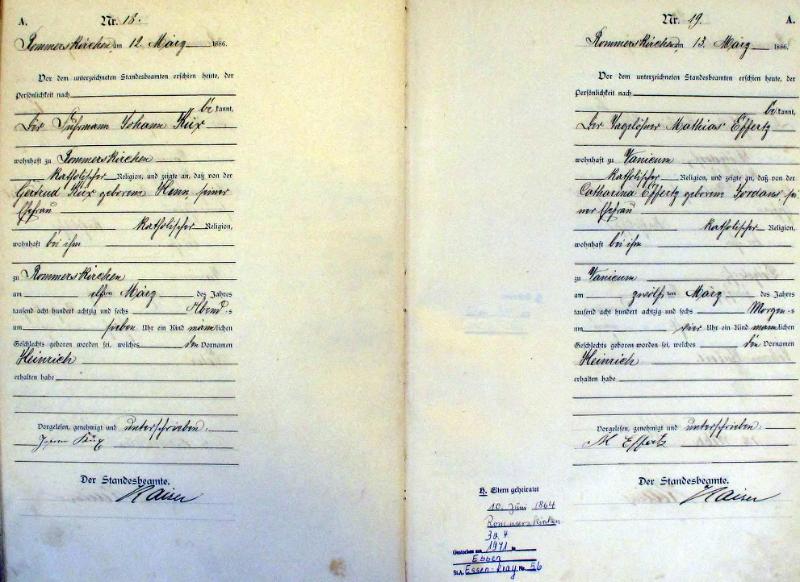 A.
Nr. 18.
Rommerskirchen, am 12. März 1886.
Vor dem unterzeichneten Standesbeamten erschien heute, der
Persönlichkeit nach
be kannt,
Der Fuhrmann Johann Küx
wohnhaft zu Rommerskirchen
katholischer Religion, und zeigte an, daß von der
Gertrud Küx geborenen Henn, seiner
Ehefrau
katholischer Religion,
wohnhaft bei ihm
zu Rommerskirchen
am elften März des Jahres
tausend acht hundert achtzig und sechs Abend s
um sieben Uhr ein Kind männlichen
Geschlechts geboren worden sei, welches den Vornamen
Heinrich
erhalten habe
Vorgelesen, genehmigt und unterschrieben.
Johann Küx
Der Standesbeamte.
Kaiser
Nr. 19.
A.
Rommerskirchen, am 13. März 1886.
Vor dem unterzeichneten Standesbeamten erschien heute, der
Persönlichkeit nach
be kannt,
Der Tagelöhner Mathias Effertz
wohnhaft zu Vanicum
katholischer Religion, und zeigte an, daß von der
Catharina Effertz geborenen Jordans, sei
ner Ehefrau
katholischer Religion,
wohnhaft bei ihm
zu Vanicum
am zwölften März des Jahres
tausend acht hundert achtzig und sechs Morgen s
um vier Uhr ein Kind männlichen
Geschlechts geboren worden sei, welches den Vornamen
Heinrich
erhalten habe
Vorgelesen, genehmigt und unterschrieben.
M Effertz
Der Standesbeamte.
Kaiser
Eltern geheiratet
10. Juni 1864
Rommerskirchen
30.
1971
Essen
Essen-Kray Nr. 56